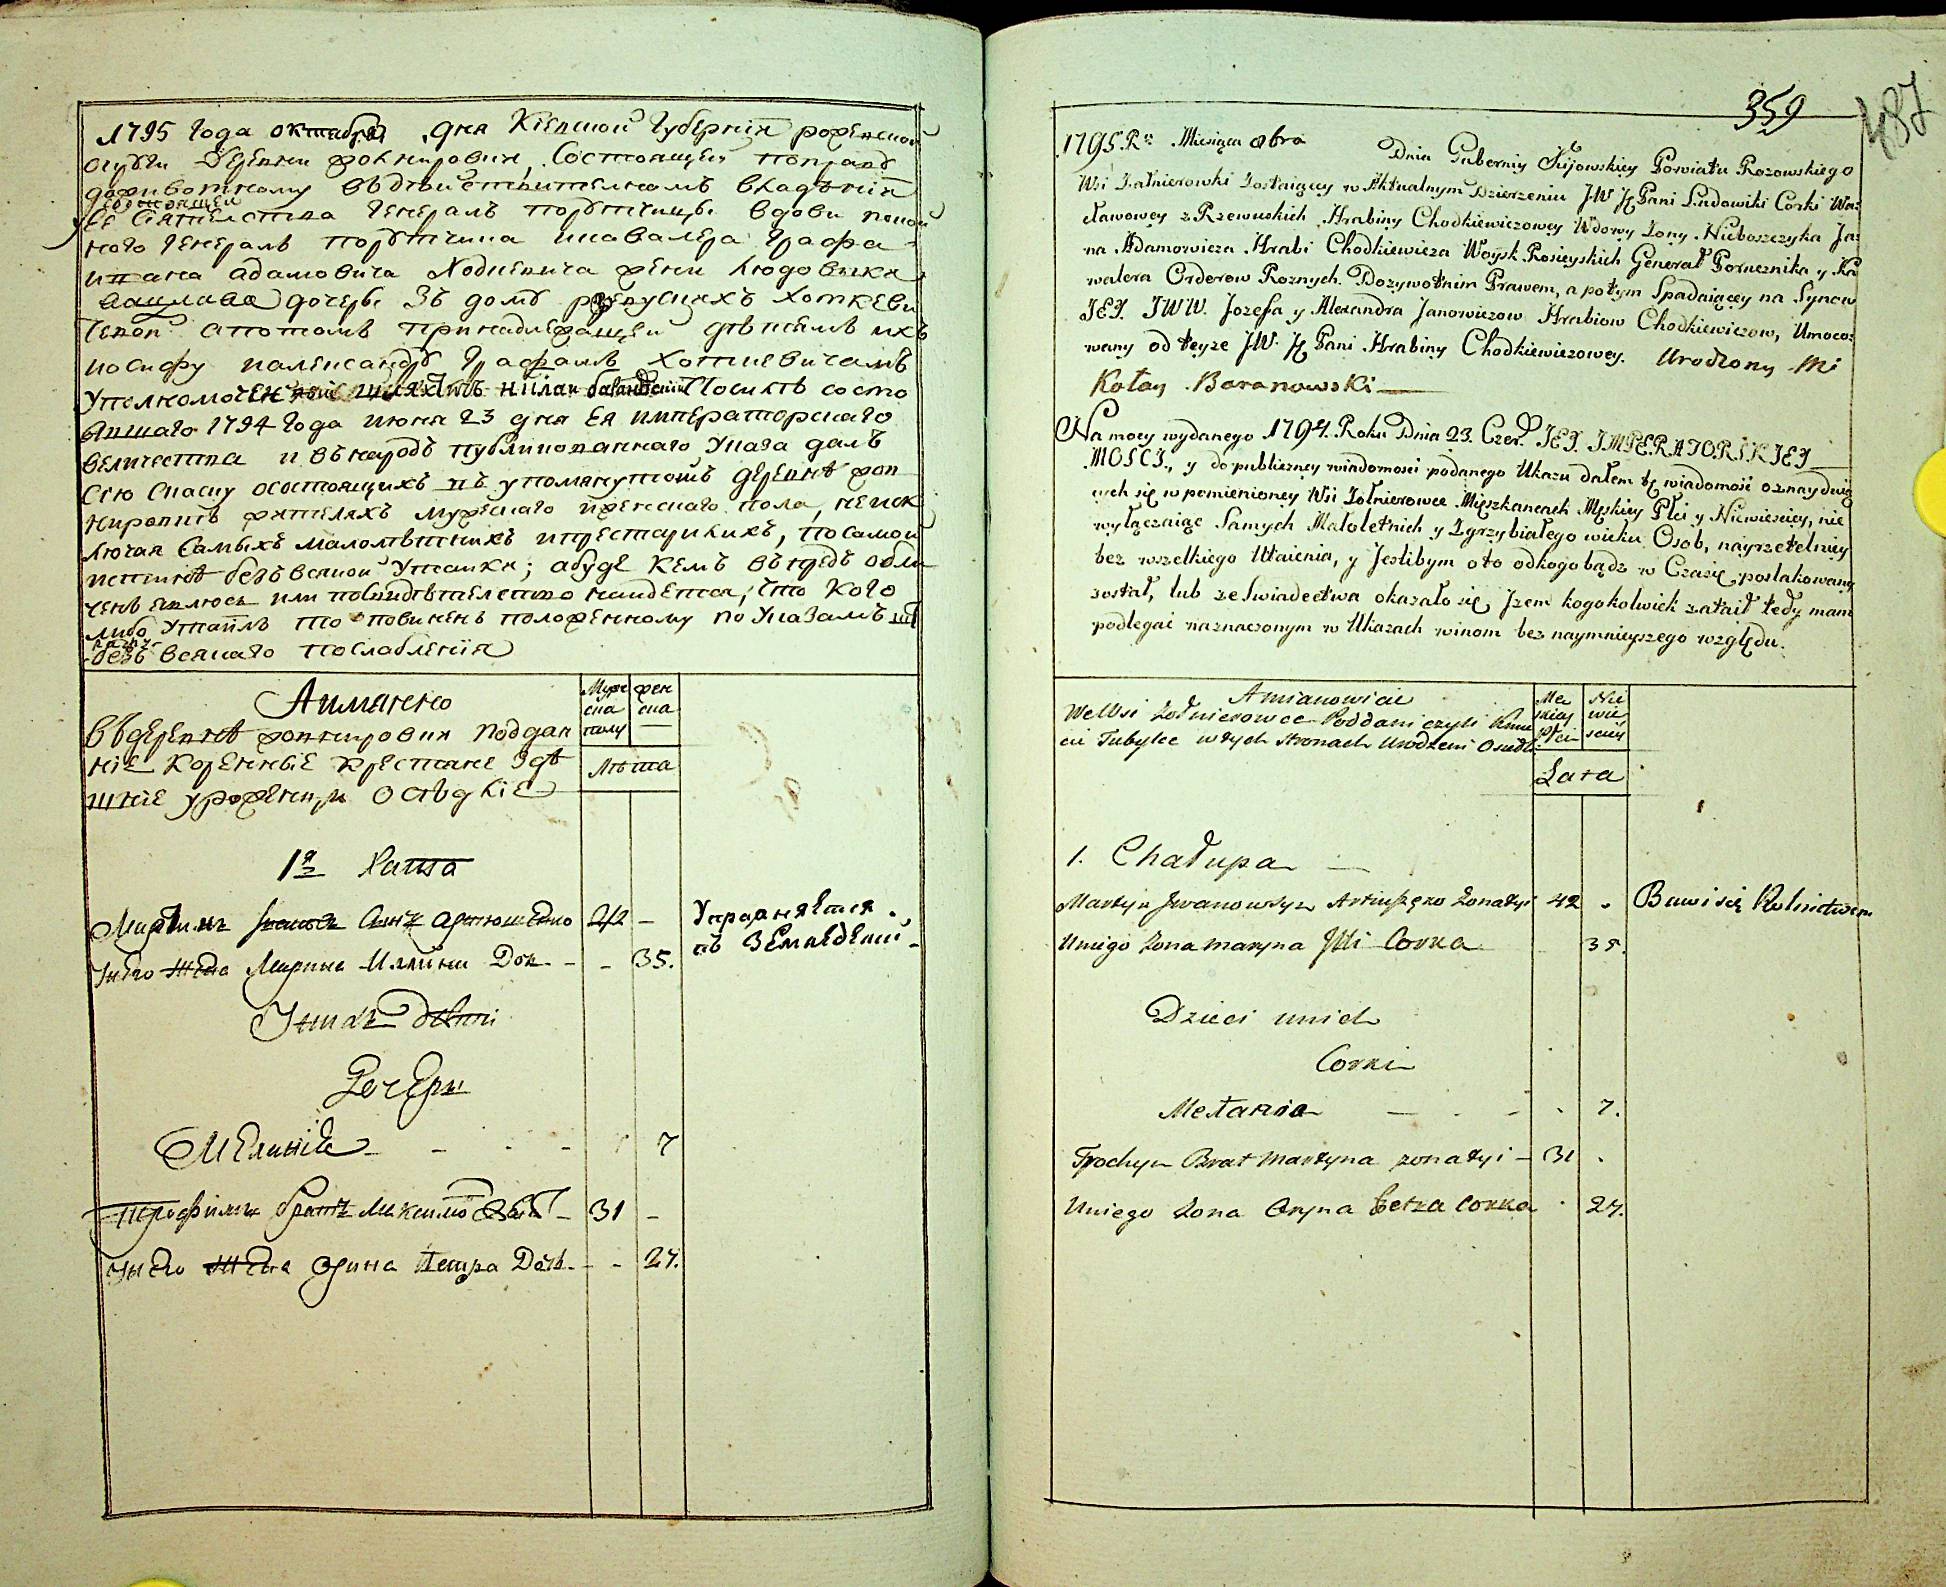 1795 года октября дня Кіевской Губерніи
округи Деревни Состоящей
доживотному въ действительномъ владѣніи
Ея Сіятельства Генералъ порутчицы вдови покой
ного Генералъ порутчика икавалера Графа
ивана адамовича Ходкевича жени людовики
вацлава дочери Зъ дому ржевускихъ хоткеви
чевой апотомъ принадлежащей дѣтямъ ихъ
иосифу иалександру Графамъ хоткевичамъ
состо
явшаго 1794 года июня 23 дня Ея императорскаго
величества и въ народъ публикованнаго указа далъ
сію сказку осостоящихъ въ упомянутомъ деревнѣ жол
нировкѣ жителяхъ мужескаго иженскаго пола, неиск
лючая самыхъ малолѣтнихъ ипрестарилихъ, посамои
истиннѣ безъ всякои утаики; абуде кемъ въпредъ обли
ченъ явлюсь или посвидѣтелство наидется, что кого
либо утаилъ то повиненъ положенному по указамъ
безъ всякаго послабленія
Аимянно
Въ деревнѣ жолнировки поддан
ніе коренные крестяне здѣ
шніе уроженци осѣдліе
Муже
ска
полу
жен
ска
Лѣта
1я Хата
Мартинъ 42 –
Унего жена Марина Дочь – – 35.
Упражняется
въ Земледелии
Унихъ дѣти
Дочери
Меланія – – – – 7
Трофимъ братъ – 31 –
Унего жена Орина Петра Дочь – – 27.
359
487
1795. Rᵘ Miesiąca 8bra Dnia Gubernij Kijowskiey Powiatu Rozowskiego
Wsi Żołnierowki Zostaiącey w Aktualnym Dzierzeniu JW Jey Pani Ludowiki Corki Wac
ławowey z Rzewuskich Hrabiny Chodkiewiczowey Wdowy Żony Nieboszczyka Ja
na Adamowicza Hrabi Chodkiewicza Woysk Rosieyskich Generał Porucznika y Ka
walera Orderow Roznych. Dozywotnim Prawem, a potym Spadaiącey na Synow
JEJ JWW. Jozefa y Alexandra Janowiczow Hrabiow Chodkiewiczow, Umoco
wany od teyze JW. Jey Pani Hrabiny Chodkiewiczowey. Urodzony Mi
kołay Baranowski
Na mocy wydanego 1794. Roku Dnia 23. Czer. JEJ IMPERATORSKIEJ
MOSCI, y do publiczney wiadomosci podanego Ukazu dałem tę wiadomość oznayduią
cych się w pomienioney Wsi Żołnierowce Mieszkancach Męskiey Płci y Niewiesciey, nie
wyłączaiąc Samych Małoletnich y Zgrzybiałego wieku Osob, nayrzetelniey
bez wszelkiego Utaienia, y Jeslibym oto odkogo bądz w Czasie poslakowany
został, lub ze Swiadectwa okazało się Jzem kogokolwiek zataił tedy mam
podlegać naznaczonym w Ukazach winom bez naymnieyszego względu.
Amianowicie
We Wsi Żołnierowce Poddani czyli Kmie
cie Tubylce wtych stronach Urodzeni Osiedli
Mę
skiey
Płci
Nie
wie
sciey
Lata
1. Chałupa
Martyn Jwanow Syn żonatyi 42 .
Uniego żona Maryna Jlli Corka 35.
Bawi się Rolnictwem
Dzieci unich
Corki
Mełania – . – . 7.
Trochym Brat Martyna żonatyi – 31 .
Uniego żona Oryna Petra Corka . 27.